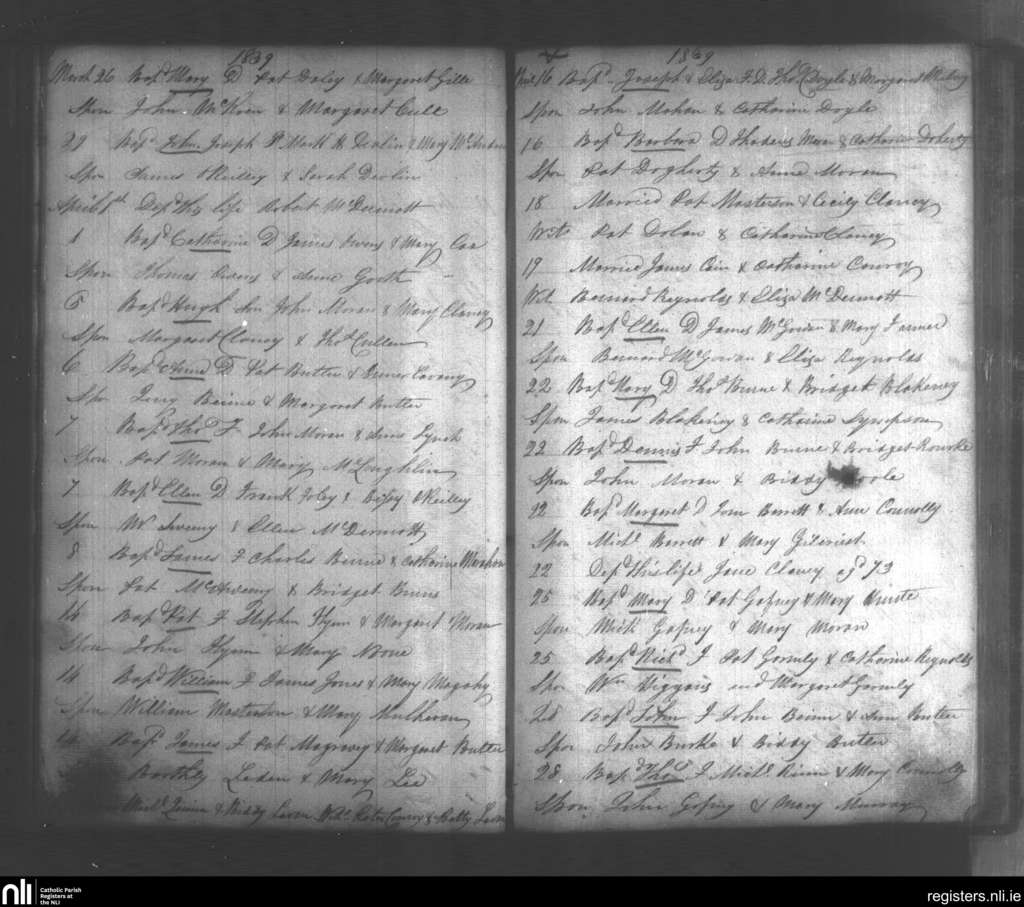 1839
March 26 Bapd Mary D Pat Daley & Margaret Gille
Spon John McKeon & Margaret Cull
29 Bapd John Joseph Mark H Devlin & Mary
Spon James Reilley & Sarah Devlin
April 1st Depd this life Robert McDermott
1 Bapd Catharine D James Owens & Mary Cox
Spon Thomas Owens & Anne
5 Bapd Hugh Son John Moran & Mary Clancy
Spon Margaret Clancy & Thos Cullen
6 Bapd Anne D Pat Butler &
Spon Beirne & Margaret Butler
7 Bapd Thos F John Moran & Anne Lynch
Spon Pat Moran & Mary McLoughlin
7 Bapd Ellen D Frank Foley & Reilley
Spon Wm & Ellen McDermott
8 Bapd James F Charles Beirne & Catharine
Spon Pat & Bridget Burns
14 Bapd Pat F Stephen Flynn & Margaret Moran
Spon John Flynn & Mary
14 Bapd William F James Jones & Mary
Spon William Masterson & Mary
Bapd James F Pat & Margaret Butler
Barthly Leden & Mary Lee
Michl & Biddy
1839
16 Bapd Joseph & Eliza F D Thos Doyle & Margaret
Spon John Mahan & Catharine Doyle
16 Bapd Barbara D Thadeus Moran & Catharine Doherty
Spon Pat Dogherty & Anne Moran
18 Married Pat Masterson & Cecily Clancy
Wits Pat Dolan & Catharine Clancy
19 Married James Cain & Catharine Conroy
Wit Bernard Reynolds & Eliza McDermott
21 Bapd Ellen D James McGowan & Mary Farmer
Spon Bernard McGowan & Eliza Reynolds
22 Bapd Mary D Thos Burne & Bridget Blakeney
Spon James Blakeney & Catharine Sympson
22 Bapd Dennis F John Burne & Bridget Rourke
Spon John Moran & Biddy
22 Bapd Margaret D Tom Barrett & Ann Connolly
Spon Michl Barrett & Mary Gilcrist
22 Depd this life Jane Clancy agd 73
25 Bapd Mary D Pat Gafney & Mary
Spon Mick Gafney & Mary Moran
25 Bapd Richd F Pat Gormly & Catharine Reynolds
Spon Wm Higgans and Margaret Gormly
28 Bapd John F John Beirne & Ann Butler
Spon John Burke & Biddy Butler
28 Bapd Thos F Michl & Mary Connolly
Spon John Gafney & Mary Murray
nli
Catholic Parish
Registers at
the NLI
registers.nli.ie